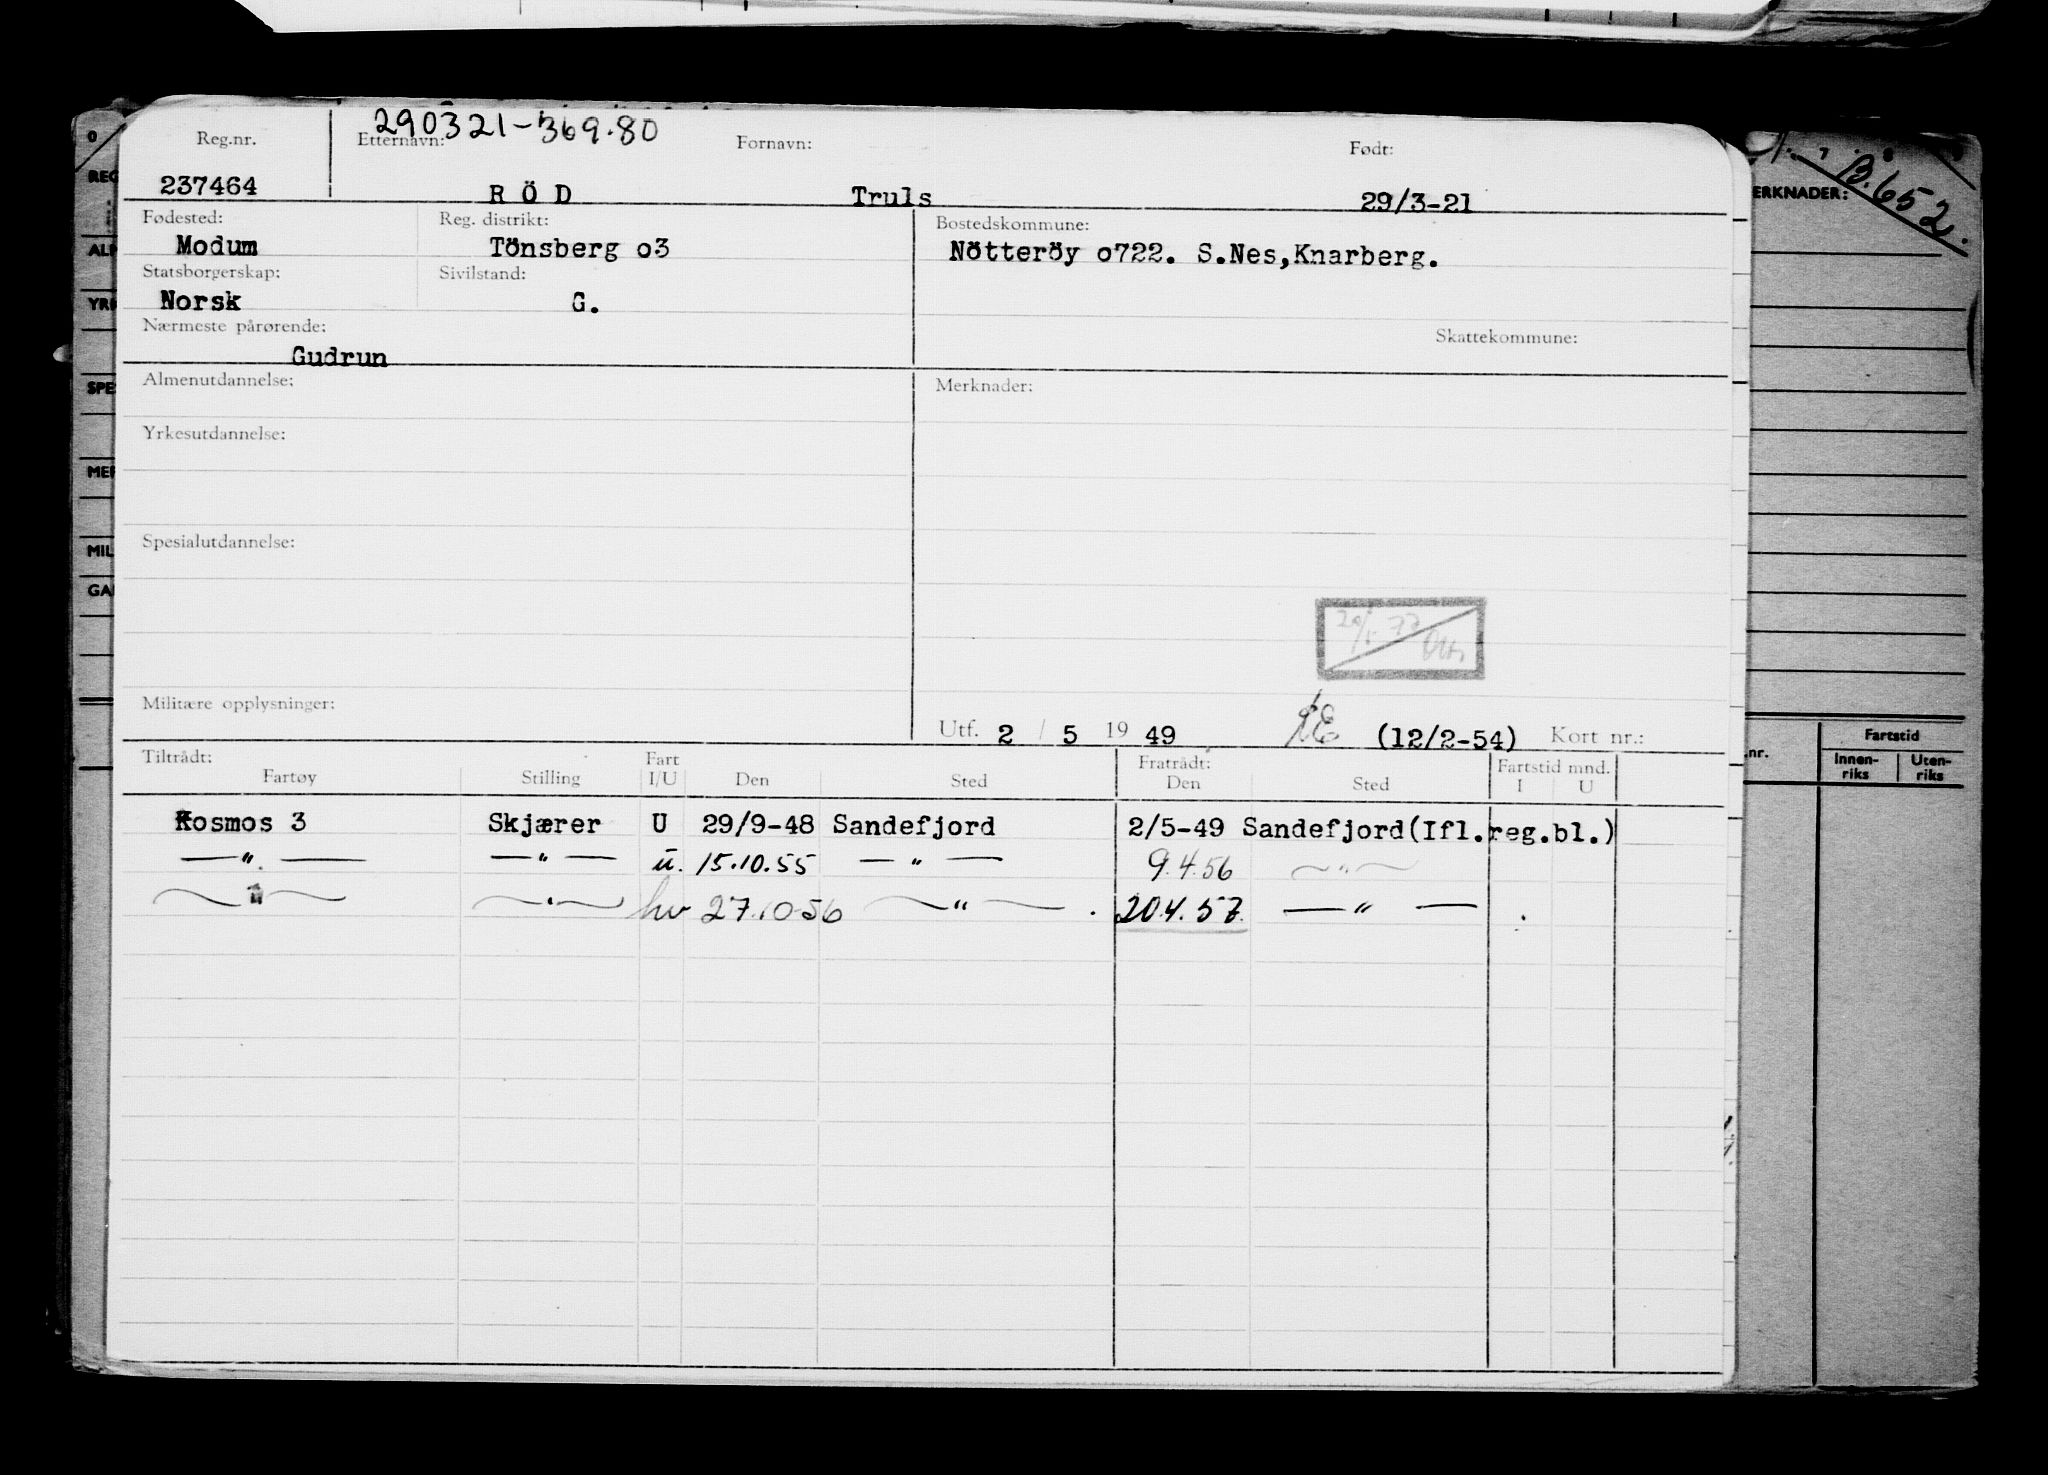 290321-369.80
Reg.nr. Etternavn: Fornavn: Født:
237464 RÖD Truls 29/3-21
Fødested: Reg. distrikt: Bostedskommune:
Modum Tönsberg o3 Nötteröy o722. S.Nes,Knarberg.
Statsborgerskap: Sivilstand:
Norsk G.
Nærmeste pårørende: Skattekommune:
Gudrun
Almenutdannelse: Merknader:
Yrkesutdannelse:
Spesialutdannelse:
Militære opplysninger:
Utf. 2 / 5 19 49 (12/2-54) Kort nr.:
Tiltrådt: Fart Fratrådt: Fartstid mnd.
Fartøy Stilling I/U Den Sted Den Sted I U
Kosmos 3 Skjærer U 29/9-48 Sandefjord 2/5-49 Sandefjord(Ifl.reg.bl.)
—"— —"— u. 15.10.55 —"— 9.4.56 —"—
—"— —"— hv 27.10-56 —"— 20.4.57. —"—
0
REG
ALM
YRK
SPES
MER
MIL
GA
ERKNADER:
13.652.
.nr. Fartstid
Innen-riks Uten-riks